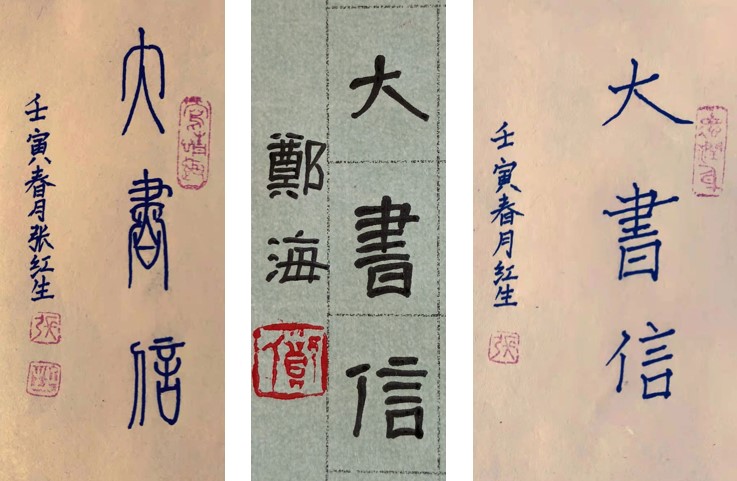 大書信
壬寅春月张红生
大書信
鄭海
大書信
壬寅春月红生